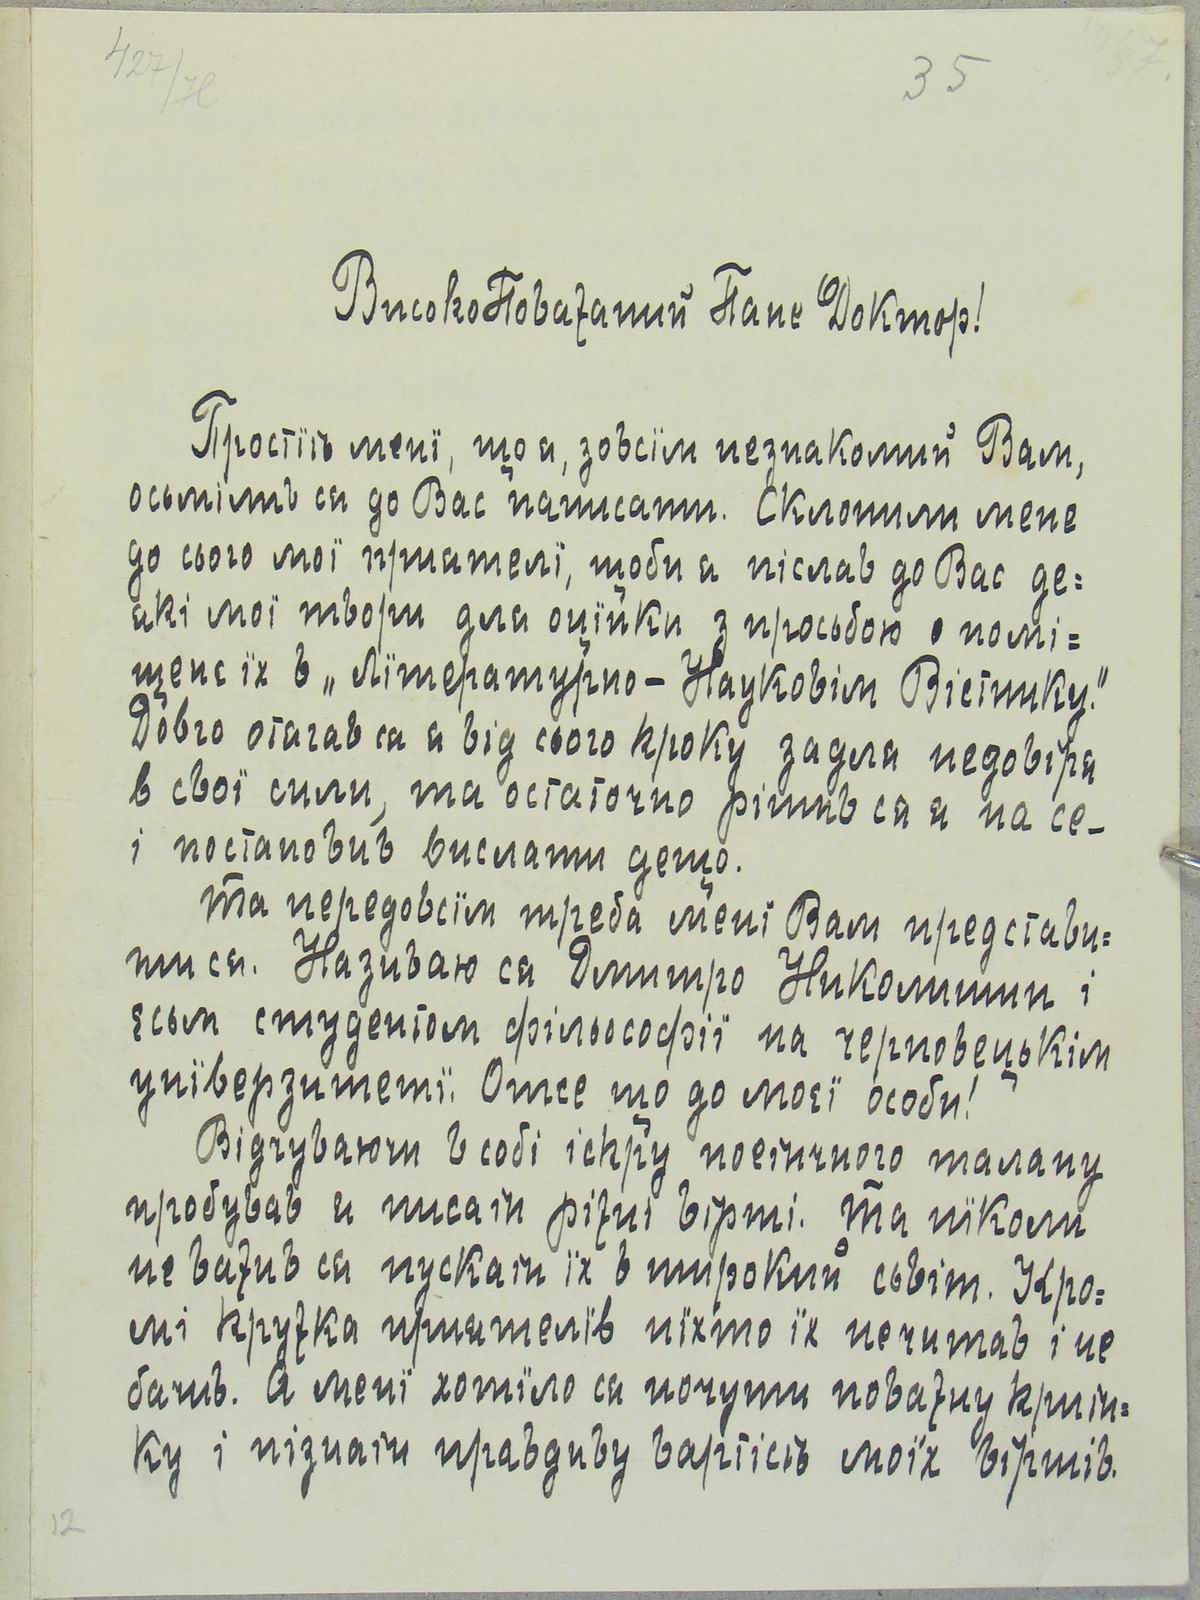 427/78
35
ВисокоПоважаний Пане Доктор!
Простїть менї, що я, зовсїм незнакомий Вам,
осьмілив ся до Вас написати. Склонили мене
до сього мої приятелї, щоби я післав до Вас де=
які мої твори для оцїнки з просьбою о помі=
щенє їх в „Лїтературно – Науковім Вістнику."
Довго отягав ся я від сього кроку задля недовіря
в свої сили, та остаточно рішив ся я на се –
і постановив вислати дещо.
Та передовсїм треба менї Вам представи=
ти ся. Називаю ся Дмитро Николишин і
єсьм студентом фільософії на черновецькім
унїверзитетї. Отсе що до моєї особи!
Відчуваючи в собі іскру поетичного талану
пробував я писати ріжні вірші. Та нїколи
не важив ся пускати їх в широкий сьвіт. Кро=
мі кружка приятелїв нїхто їх не читав і не
бачив. А менї хотїло ся почути поважну крити=
ку і пізнати правдиву вартість моїх віршів.
12